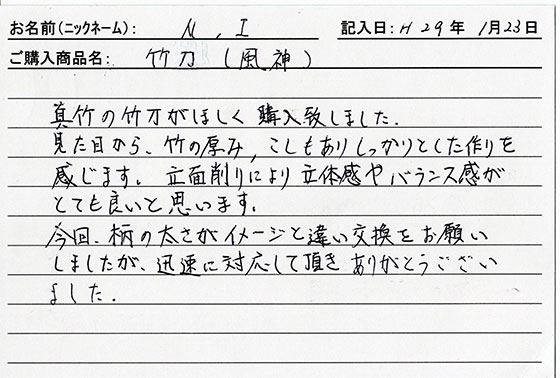 お名前(ニックネーム): M.I 記入日: H 29 年 1月 23 日
ご購入商品名: 竹刀 (風神)
真竹の竹刀がほしく購入致しました.
見た目から、竹の厚み, こしもありしっかりとした作りを
感じます。立面削りにより立体感やバランス感が
とても良いと思います。
今回、柄の太さがイメージと違い交換をお願い
しましたが、迅速に対応して頂きありがとうござい
ました.